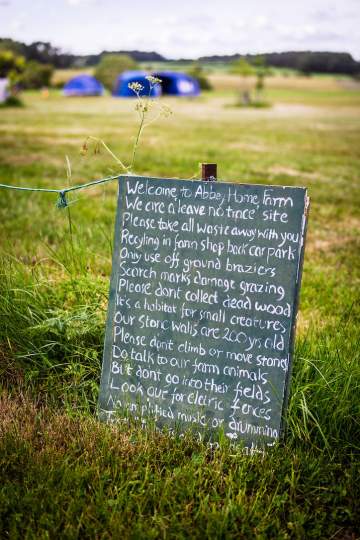 Welcome to Abbey Home Farm
We are a leave no trace site
Please take all waste away with you
Recycling in farm shop back car park
Only use off ground braziers
Scorch marks damage grazing
Please dont collect dead wood
It's a habitat for small creatures
Our stone walls are 200 yrs old
Please don't climb or move stones
Do talk to our farm animals
But dont go into their fields
Look out for electric fences
No amplified music or drumming